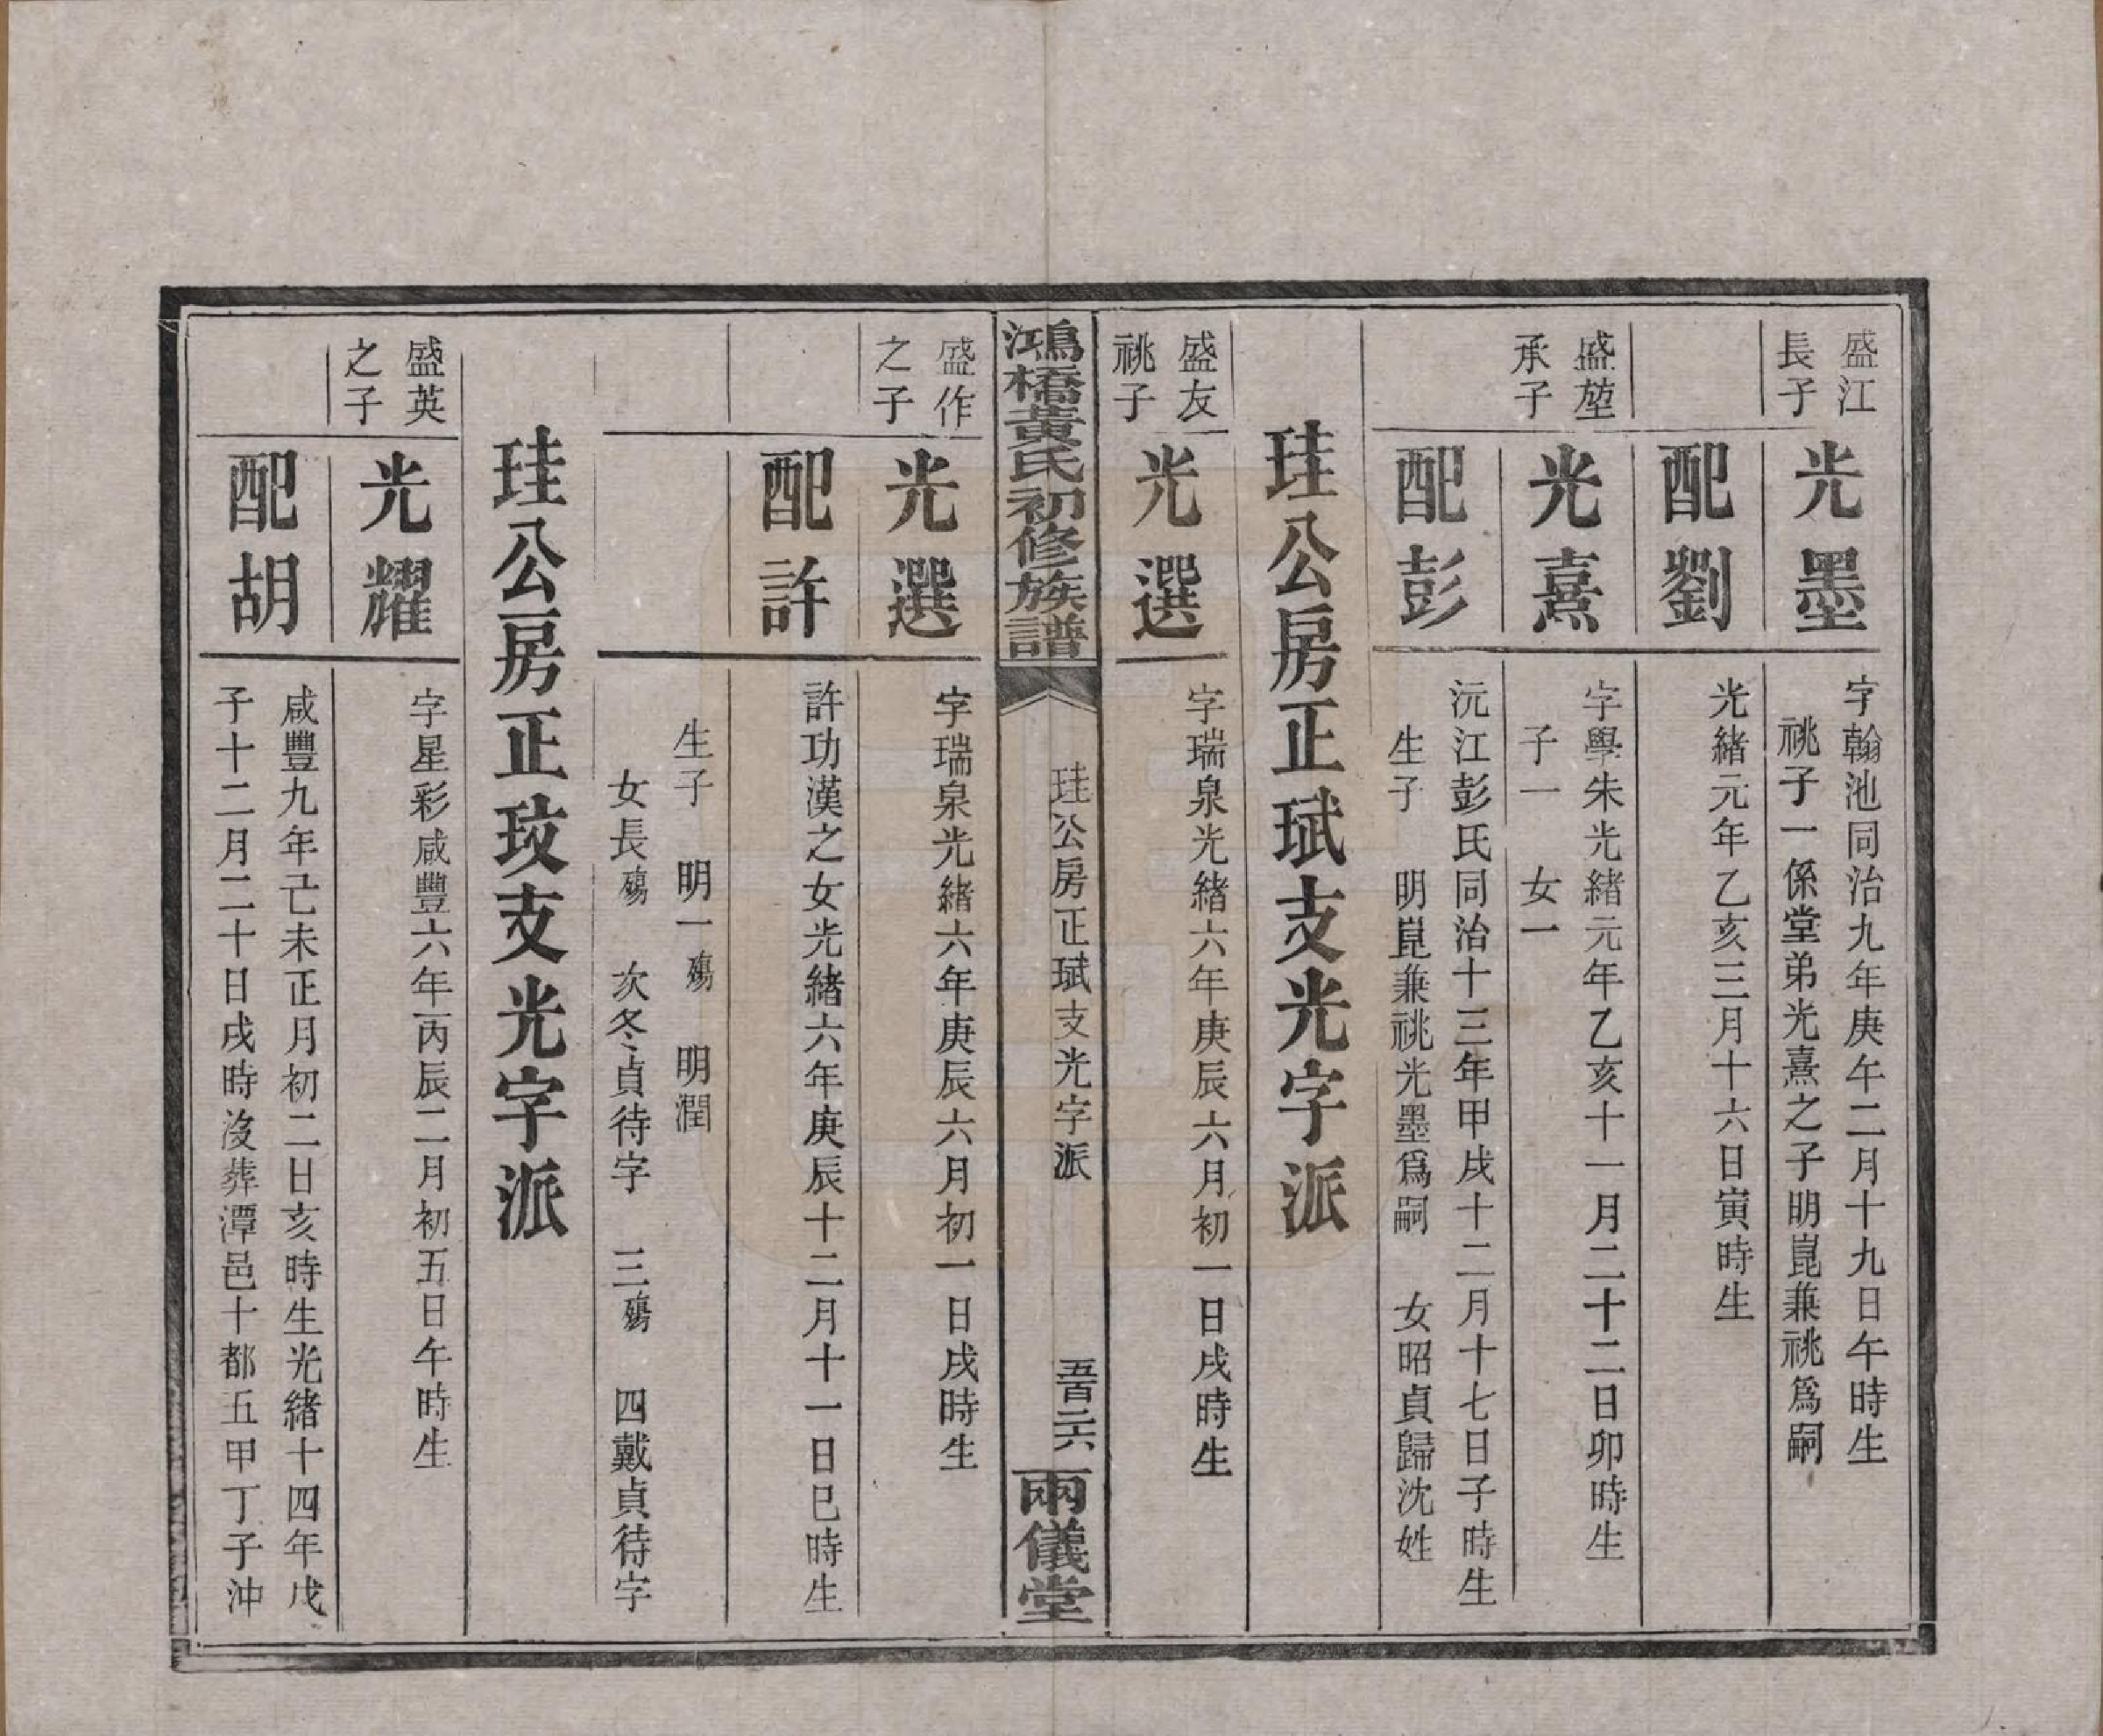 盛江
長子
光墨
字翰池同治九年庚午二月十九日午時生
祧子一係堂弟光熹之子明崑兼祧爲嗣
配劉
光緒元年乙亥三月十六日寅時生
盛堃
承子
光熹
字學朱光緒元年乙亥十一月二十二日卯時生
子一 女一
配彭
沅江彭氏同治十三年甲戌十二月十七日子時生
生子 明崑兼祧光墨爲嗣 女昭貞歸沈姓
珪公房正珷支光字派
盛友
祧子
光選
字瑞泉光緒六年庚辰六月初一日戌時生
鴻橋黃氏初修族譜
珪公房正珷支光字派
五百二六
兩儀堂
盛作
之子
光選
字瑞泉光緒六年庚辰六月初一日戌時生
配許
許功漢之女光緒六年庚辰十二月十一日巳時生
生子 明一殤 明潤
女長殤 次冬貞待字 三殤 四戴貞待字
珪公房正玟支光字派
盛英
之子
光耀
字星彩咸豐六年丙辰二月初五日午時生
配胡
咸豐九年己未正月初二日亥時生光緒十四年戊
子十二月二十日戌時沒葬潭邑十都五甲丁子沖